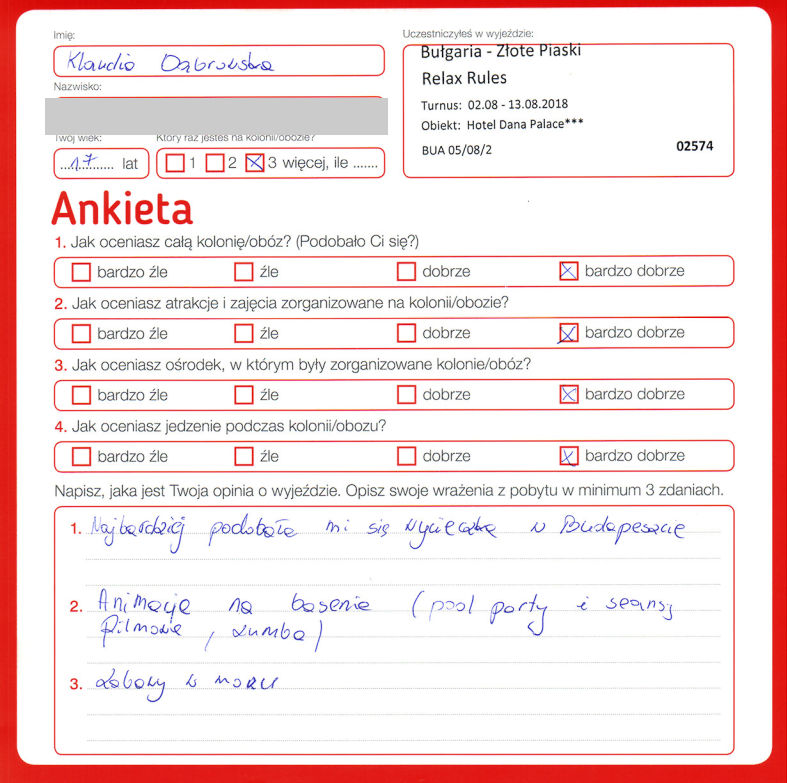 Imię:
Klaudia Dąbrowska
Nazwisko:
Twój wiek:
17 lat
Który raz jesteś na kolonii/obozie?
1 2 3 więcej, ile .......
Uczestniczyłeś w wyjeździe:
Bułgaria - Złote Piaski
Relax Rules
Turnus: 02.08 - 13.08.2018
Obiekt: Hotel Dana Palace***
BUA 05/08/2 02574
Ankieta
1. Jak oceniasz całą kolonię/obóz? (Podobało Ci się?)
bardzo źle źle dobrze bardzo dobrze
2. Jak oceniasz atrakcje i zajęcia zorganizowane na kolonii/obozie?
bardzo źle źle dobrze bardzo dobrze
3. Jak oceniasz ośrodek, w którym były zorganizowane kolonie/obóz?
bardzo źle źle dobrze bardzo dobrze
4. Jak oceniasz jedzenie podczas kolonii/obozu?
bardzo źle źle dobrze bardzo dobrze
Napisz, jaka jest Twoja opinia o wyjeździe. Opisz swoje wrażenia z pobytu w minimum 3 zdaniach.
1. Najbardziej podobała mi się wycieczka w Budapeszcie
2. Animacje na basenie (pool party i seansy
filmowe, zumba)
3. zabawy w morzu